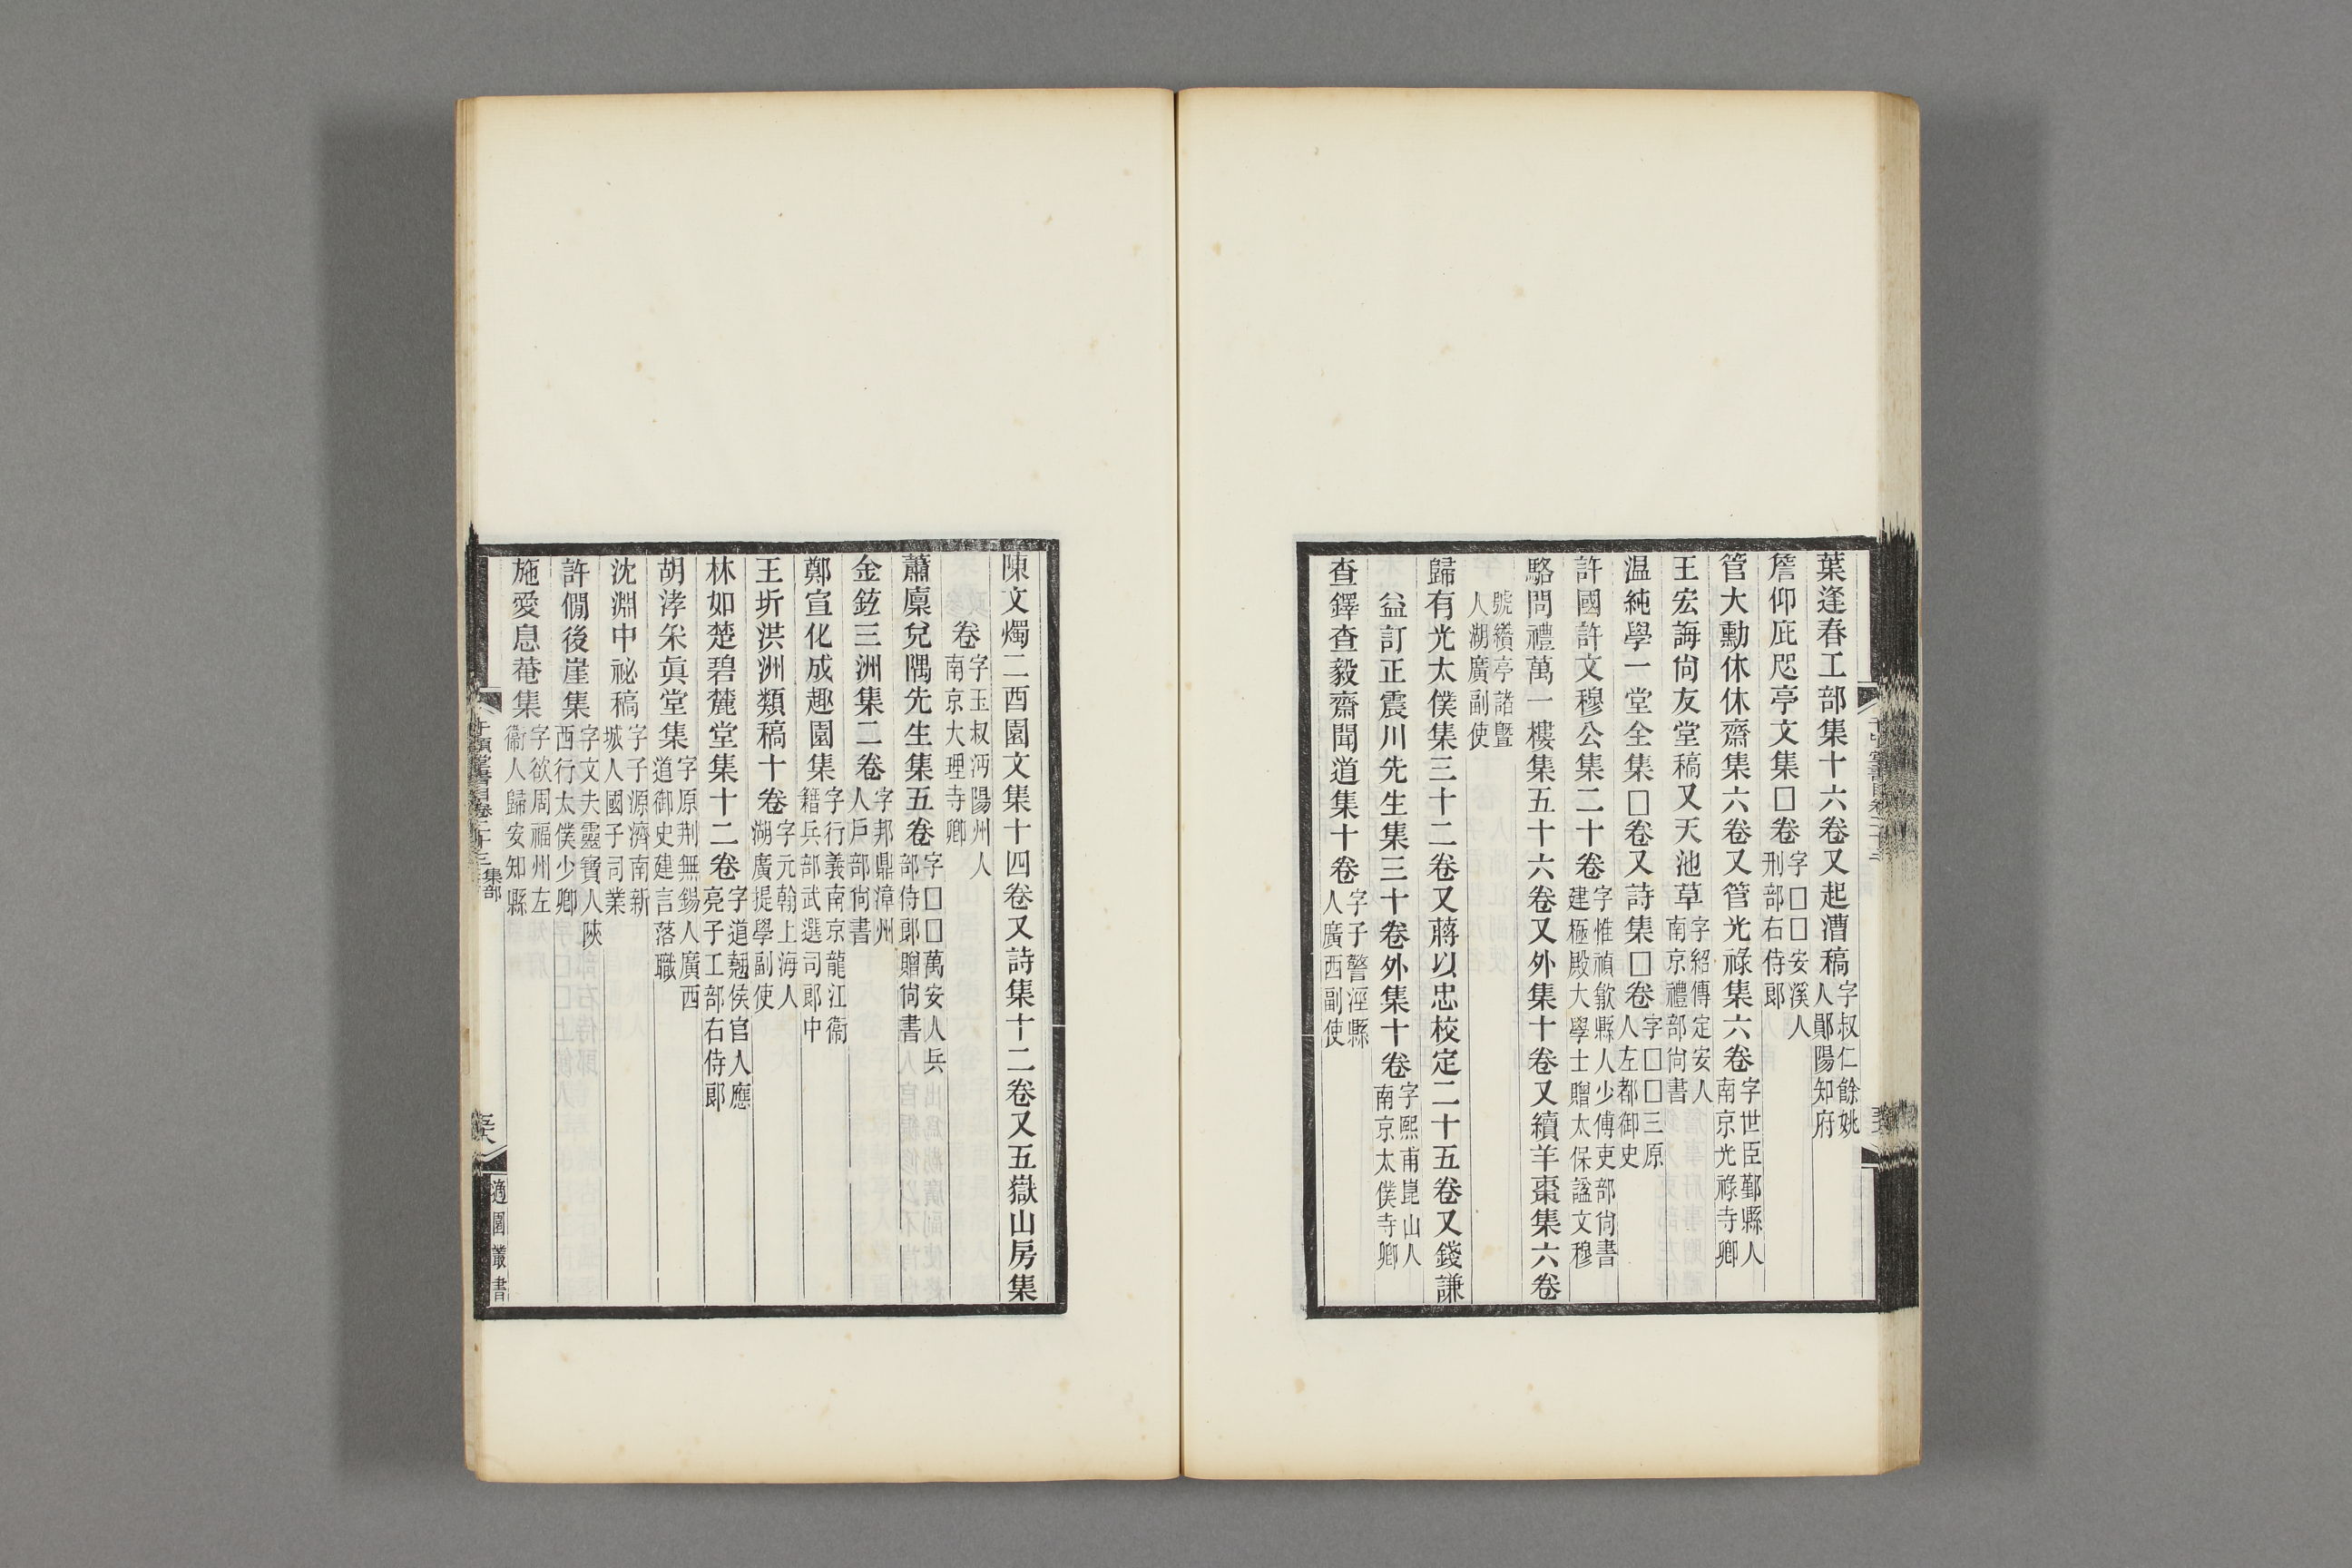 葉逢春工部集十六卷又起漕稿字叔仁餘姚人鄖陽知府
詹仰庇咫亭文集□卷字□□安溪人刑部右侍郎
管大勳休休齋集六卷又管光祿集六卷字世臣鄞縣人南京光祿寺卿
王宏誨尙友堂稿又天池草字紹傳定安人南京禮部尙書
温純學一堂全集□卷又詩集□卷字□□三原人左都御史
許國許文穆公集二十卷字惟禎歙縣人少傅吏部尙書建極殿大學士贈太保諡文穆
駱問禮萬一樓集五十六卷又外集十卷又續羊棗集六卷
號纘亭諸曁人湖廣副使
歸有光太僕集三十二卷又蔣以忠校定二十五卷又錢謙
益訂正震川先生集三十卷外集十卷字熙甫崑山人南京太僕寺卿
查鐸查毅齋聞道集十卷字子警涇縣人廣西副使
陳文燭二酉園文集十四卷又詩集十二卷又五嶽山房集
卷字玉叔沔陽州人南京大理寺卿
蕭廩兌隅先生集五卷字□□萬安人兵部侍郎贈尙書
金鉉三洲集二卷字邦鼎漳州人戶部尙書
鄭宣化成趣園集字行義南京龍江衞籍兵部武選司郎中
王圻洪洲類稿十卷字元翰上海人湖廣提學副使
林如楚碧麓堂集十二卷字道翹侯官人應亮子工部右侍郎
胡涍釆眞堂集字原荆無錫人廣西道御史建言落職
沈淵中祕稿字子源濟南新城人國子司業
許僩後崖集字文夫靈寶人陝西行太僕少卿
施愛息菴集字欲周福州左衞人歸安知縣
千頃堂書目卷二十三集部
適園叢書